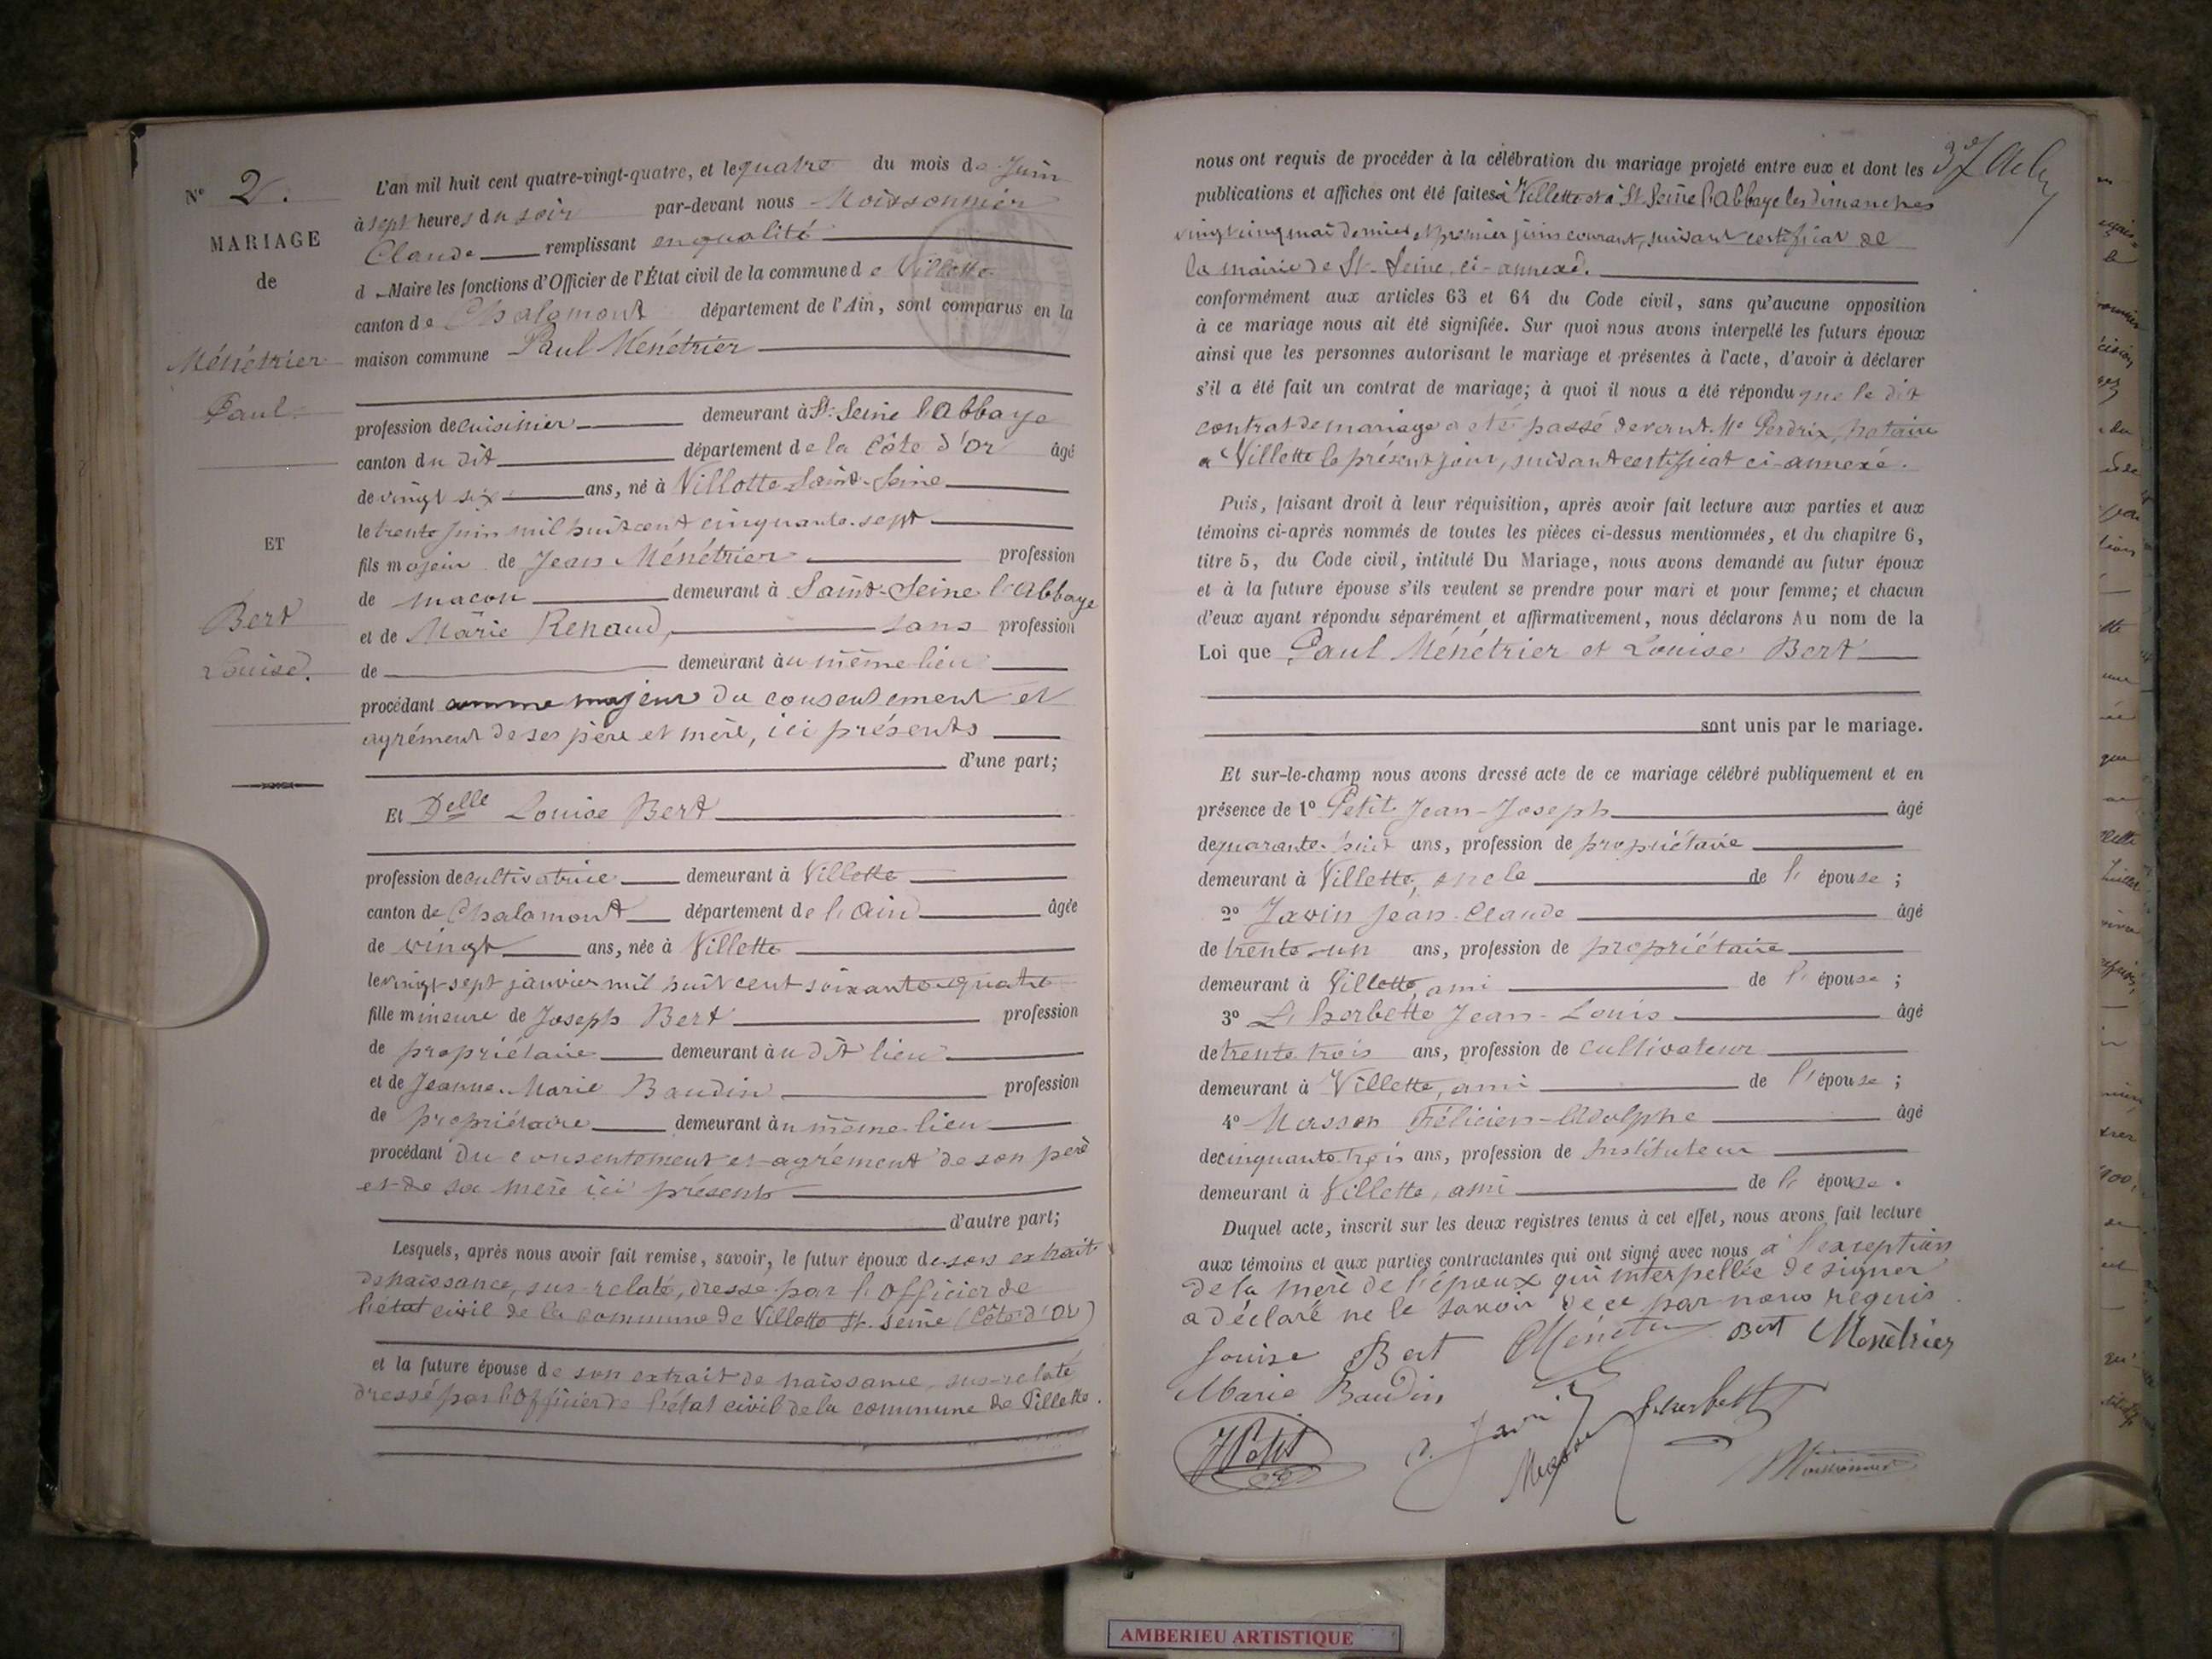 N° 2.
MARIAGE
de
Ménétrier
Paul
ET
Bert
Louise.
L'an mil huit cent quatre-vingt-quatre, et le quatre du mois de Juin
à sept heures du soir par-devant nous Moissonnier
Claude remplissant en qualité
d Maire les fonctions d'Officier de l'État civil de la commune de Villette
canton de Chalamont département de l'Ain, sont comparus en la
maison commune Paul Ménétrier
profession de cuisinier demeurant à St. Seine l'Abbaye
canton du dit département de la Côte d'Or âgé
de vingt six ans, né à Villotte Saint-Seine
le trente juin mil huit cent cinquante-sept
fils majeur de Jean Ménétrier profession
de macon demeurant à Saint-Seine l'Abbaye
et de Marie Renaud, sans profession
de demeurant au même lieu
procédant comme majeur du consentement et
agrément de ses père et mère, ici présents
d'une part;
Et Delle Louise Bert
profession de cultivatrice demeurant à Villette
canton de Chalamont département de l'Ain âgée
de vingt ans, née à Villette
le vingt-sept janvier mil huit cent soixante-quatre
fille mineure de Joseph Bert profession
de propriétaire demeurant au dit lieu
et de Jeanne-Marie Baudin profession
de propriétaire demeurant au même lieu
procédant du consentement et agrément de son père
et de sa mère ici présents
d'autre part;
Lesquels, après nous avoir fait remise, savoir, le futur époux de son extrait
de naissance, sus-relaté, dressé par l'Officier de
l'état civil de la commune de Villotte St. Seine (Côte d'Or)
et la future épouse de son extrait de naissance, sus-relaté
dressé par l'Officier de l'état civil de la commune de Villette.
nous ont requis de procéder à la célébration du mariage projeté entre eux et dont les
publications et affiches ont été faites à Villette et à St Seine l'Abbaye les dimanches
vingt cinq mai dernier et premier juin courant, suivant certificat de
la mairie de St-Seine ci-annexé.
conformément aux articles 63 et 64 du Code civil, sans qu'aucune opposition
à ce mariage nous ait été signifiée. Sur quoi nous avons interpellé les futurs époux
ainsi que les personnes autorisant le mariage et présentes à l'acte, d'avoir à déclarer
s'il a été fait un contrat de mariage; à quoi il nous a été répondu que le dit
contrat de mariage a été passé devant Me Perdrix, notaire
à Villette le présent jour, suivant certificat ci-annexé.
Puis, faisant droit à leur réquisition, après avoir fait lecture aux parties et aux
témoins ci-après nommés de toutes les pièces ci-dessus mentionnées, et du chapitre 6,
titre 5, du Code civil, intitulé Du Mariage, nous avons demandé au futur époux
et à la future épouse s'ils veulent se prendre pour mari et pour femme; et chacun
d'eux ayant répondu séparément et affirmativement, nous déclarons Au nom de la
Loi que Paul Ménétrier et Louise Bert
sont unis par le mariage.
Et sur-le-champ nous avons dressé acte de ce mariage célébré publiquement et en
présence de 1° Petit Jean-Joseph âgé
de quarante-huit ans, profession de propriétaire
demeurant à Villette, oncle de l'épouse ;
2° Javin Jean-Claude âgé
de trente-un ans, profession de propriétaire
demeurant à Villette, ami de l'épouse ;
3° Lherbette Jean-Louis âgé
de trente trois ans, profession de cultivateur
demeurant à Villette, ami de l'épouse ;
4° Masson Félicien-Adolphe âgé
de cinquante trois ans, profession de Instituteur
demeurant à Villette, ami de l'épouse.
Duquel acte, inscrit sur les deux registres tenus à cet effet, nous avons fait lecture
aux témoins et aux parties contractantes qui ont signé avec nous à l'exception
de la mère de l'époux qui interpellée de signer
a déclaré ne le savoir de ce par nous requis.
Louise Bert Ménétrier Bert Ménétrier
Marie Baudin
JPetit Javin Masson Lherbette Moissonnier
AMBERIEU ARTISTIQUE